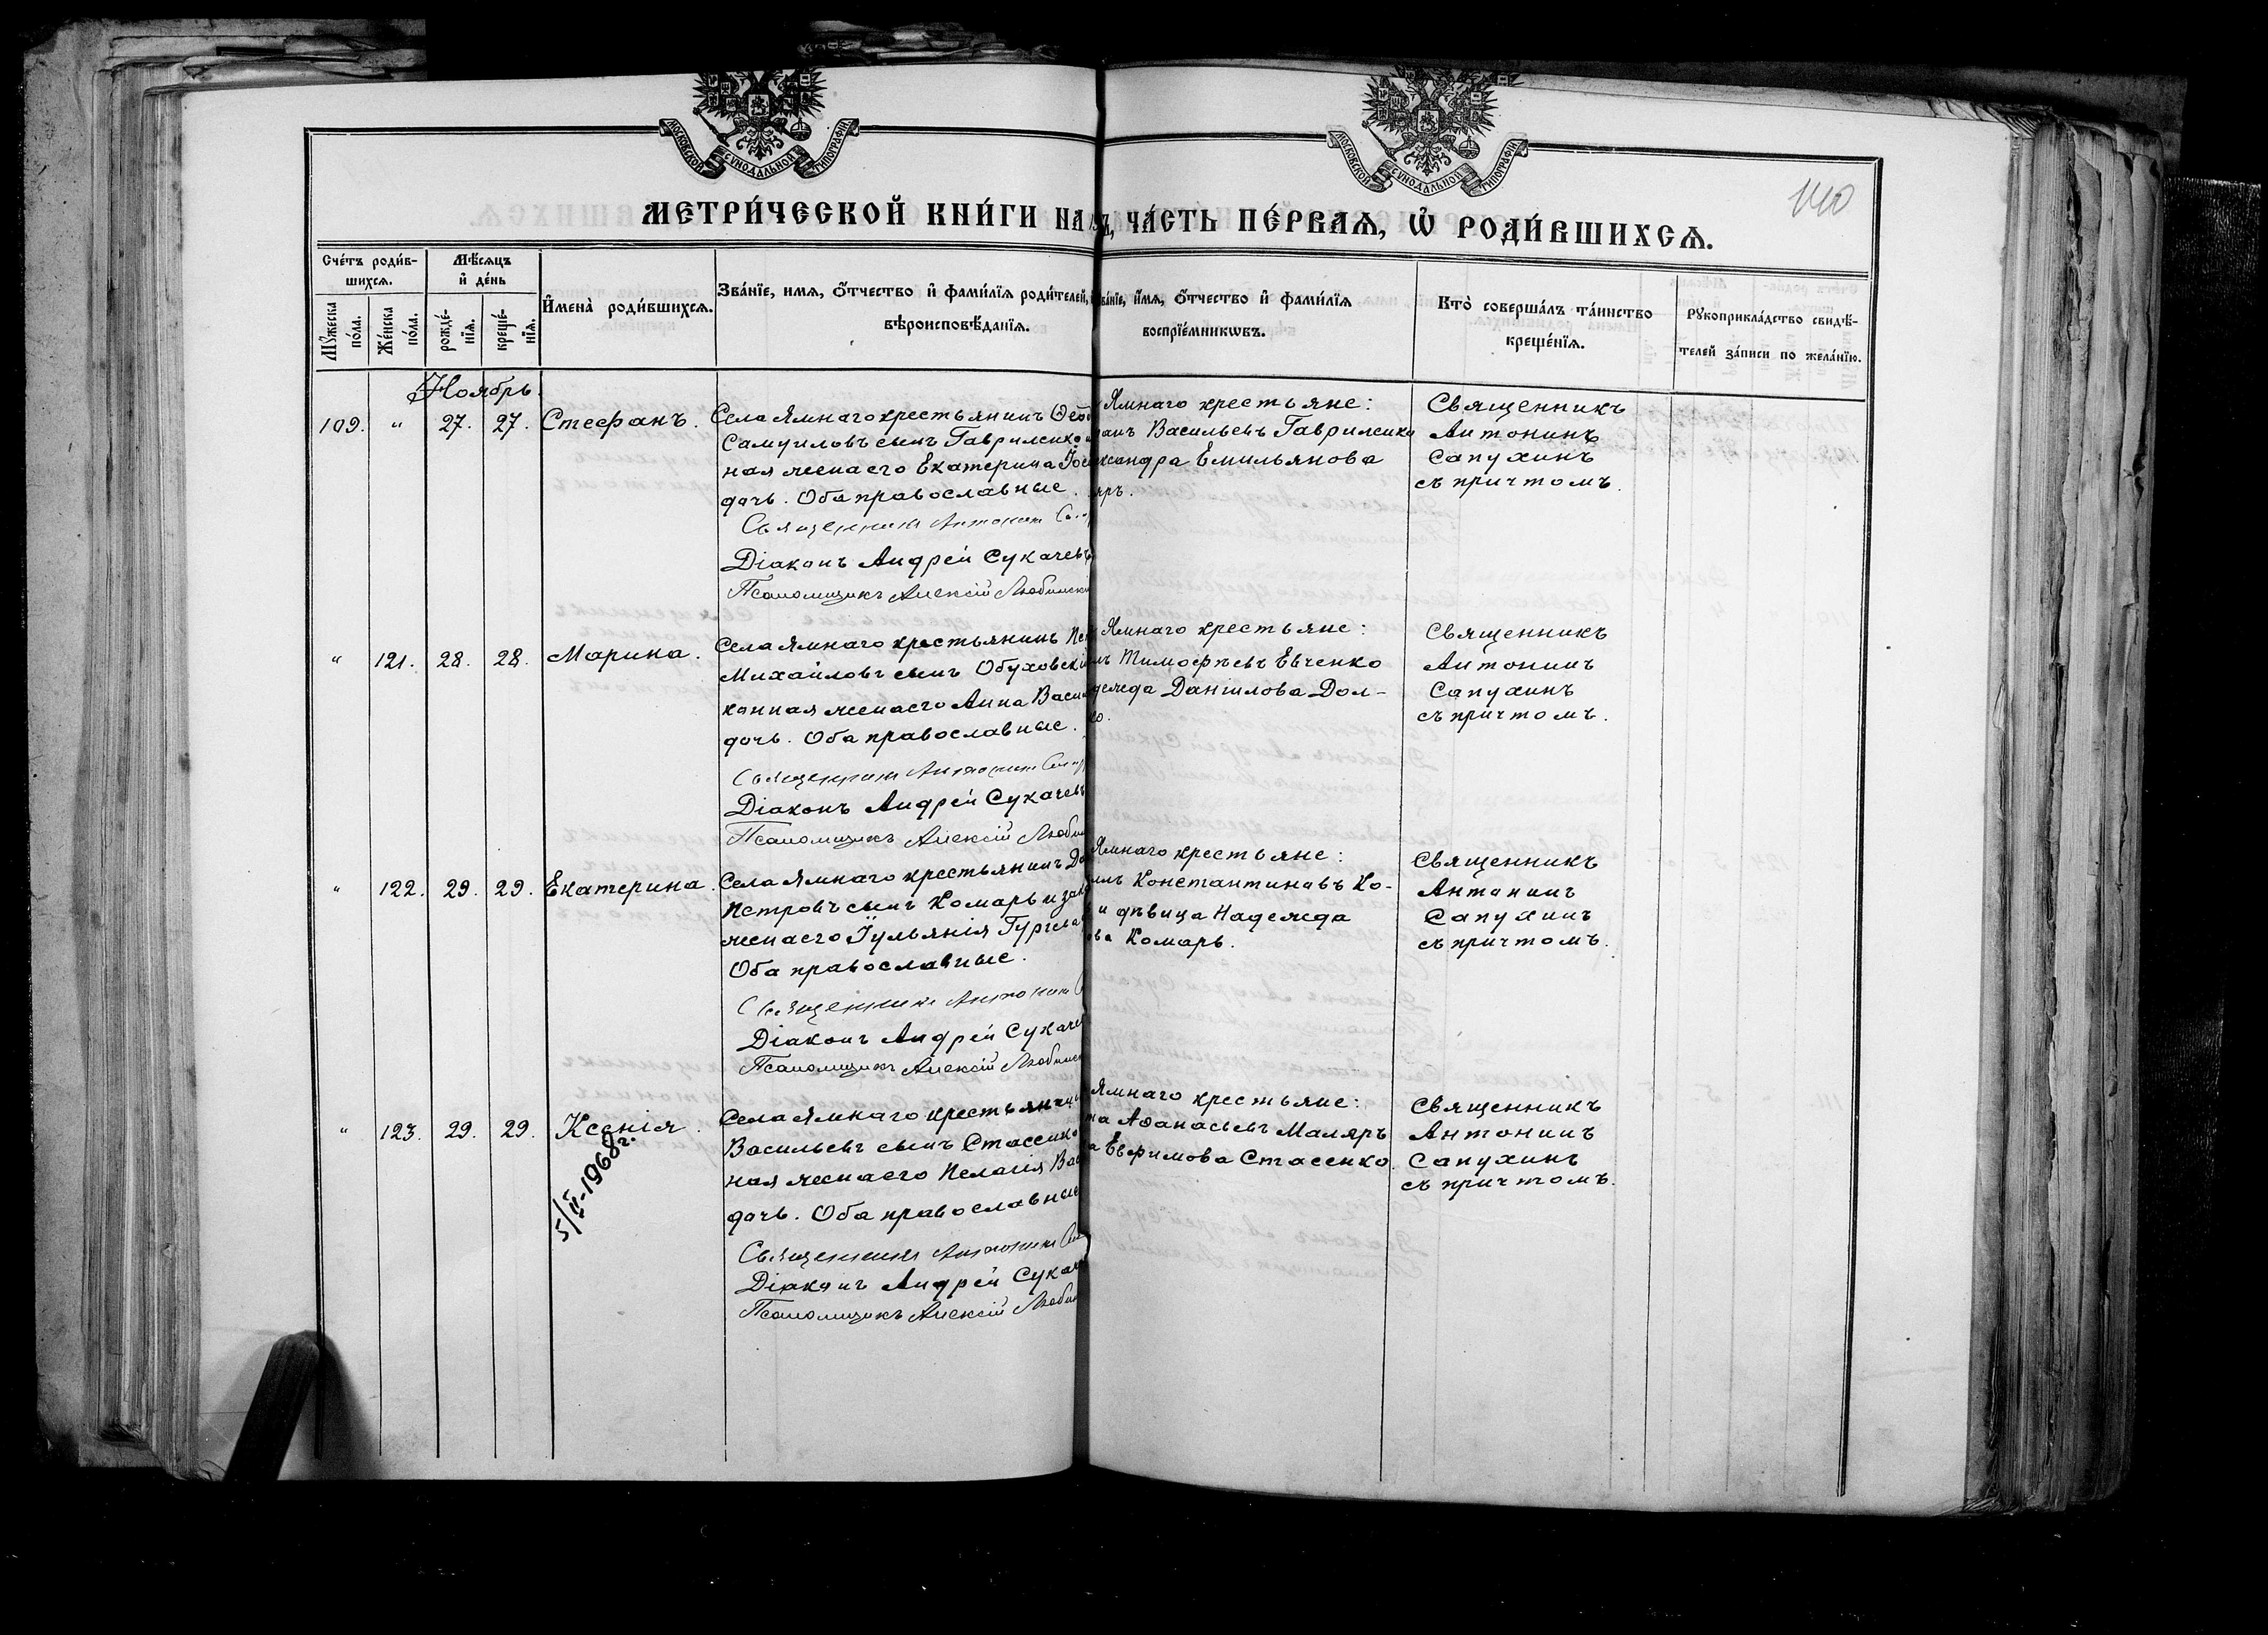 МОСКОВСКОЙ СѴНОДАЛЬНОЙ ТИПОГРАФІИ
МОСКОВСКОЙ СѴНОДАЛЬНОЙ ТИПОГРАФІИ
110
МЕТРИ́ЧЕСКОЙ КНИ́ГИ НА
ЧА́СТЬ ПЕ́РВАЯ, Ѡ҆ РОДИ́ВШИХСЯ.
Сче́тъ роди́в-
шихся.
Мѣ́сяцъ
и҆ де́нь
Мꙋ́жеска
по́ла.
Же́нска
по́ла.
рожде́-
нїя.
креще́-
нїя.
И҆мена̀ роди́вшихся.
Зва́нїе, имя, ѻ҆́тчество и҆ фами́лїя роди́телей,
вѣроисповѣ́данїя.
и҆́мя, ѻ҆́тчество и҆ фами́лїя
воспрїе́мникѡвъ.
Кто̀ соверша́лъ та́инство
креще́нїя.
Рꙋкоприкла́дство свидѣ́-
телей за́писи по жела́нїю.
Ноябрь.
109. " 27. 27. Стефанъ.
Села Ямнаго крестьянинъ
Самуиловъ сынъ Гавриленко
ная жена его Екатерина
дочь. Оба православные.
Священникъ Антонинъ
Діаконъ Андрей Сукачевъ
Псаломщикъ Алексій
Ямнаго крестьяне:
Васильевъ Гавриленко
Емильянова
Священникъ
Антонинъ
Сапухинъ
съ причтомъ.
" 121. 28. 28. Марина.
Села Ямнаго крестьянинъ
Михайловъ сынъ
жена его Анна
дочь. Оба православные.
Священникъ Антонинъ
Діаконъ Андрей Сукачевъ
Псаломщикъ Алексій
Ямнаго крестьяне:
Тимофѣевъ Евченко
Даніилова Дол-
Священникъ
Антонинъ
Сапухинъ
съ причтомъ.
" 122. 29. 29. Екатерина.
Села Ямнаго крестьянинъ
Петровъ сынъ Комарь и
жена его Іульянія
Оба православные.
Священникъ Антонинъ
Діаконъ Андрей
Псаломщикъ Алексій
Ямнаго крестьяне:
Константиновъ Ко-
и дѣвица Надежда
Комарь.
Священникъ
Антонинъ
Сапухинъ
съ причтомъ.
" 123. 29. 29. Ксенія.
5/II-1968г.
Села Ямнаго крестьянинъ
Васильевъ сынъ Стасенко
ная жена его Пелагія
дочь. Оба православные
Священникъ Антонинъ
Діаконъ Андрей
Псаломщикъ Алексій
Ямнаго крестьяне:
Аѳанасьевъ Маляръ
Евфимова Стасенко.
Священникъ
Антонинъ
Сапухинъ
съ причтомъ.